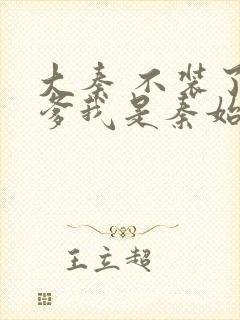 大秦 不装了
爹我是秦始
王立超